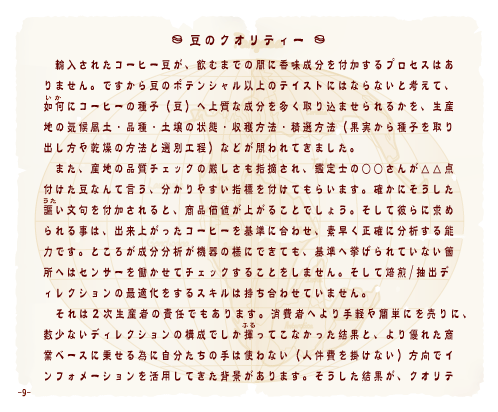 豆のクオリティー
輸入されたコーヒー豆が、飲むまでの間に香味成分を付加するプロセスはあ
りません。ですから豆のポテンシャル以上のテイストにはならないと考えて、
いか
如何にコーヒーの種子（豆）へ上質な成分を多く取り込ませられるかを、生産
地の気候風土・品種・土壌の状態・収穫方法・精選方法（果実から種子を取り
出し方や乾燥の方法と選別工程）などが問われてきました。
また、産地の品質チェックの厳しさも指摘され、鑑定士の〇〇さんが△△点
付けた豆なんて言う、分かりやすい指標を付けてもらいます。確かにそうした
うた
謳い文句を付加されると、商品価値が上がることでしょう。そして彼らに求め
られる事は、出来上がったコーヒーを基準に合わせ、素早く正確に分析する能
力です。ところが成分分析が機器の様にできても、基準へ挙げられていない箇
所へはセンサーを働かせてチェックすることをしません。そして焙煎/抽出デ
ィレクションの最適化をするスキルは持ち合わせていません。
それは２次生産者の責任でもあります。消費者へより手軽や簡単にを売りに、
ふる
数少ないディレクションの構成でしか揮ってこなかった結果と、より優れた商
業ベースに乗せる為に自分たちの手は使わない（人件費を掛けない）方向でイ
ンフォメーションを活用してきた背景があります。そうした結果が、クオリテ
-9-